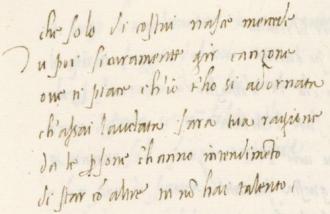 che solo di costui nasce mercede
u poi sicuramente gir canzone
oue ti piace ch'io t'ho si adornata
ch'assai laudata sara tua ragione
da le psone c'hanno intendimeto
di star cō altre tu nō hai talento.